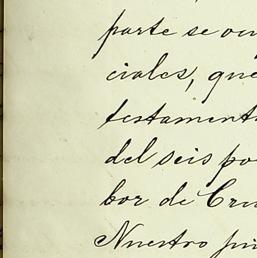 parte se
ciales, que
testament
del seis po
bor de Cru
Nuestro